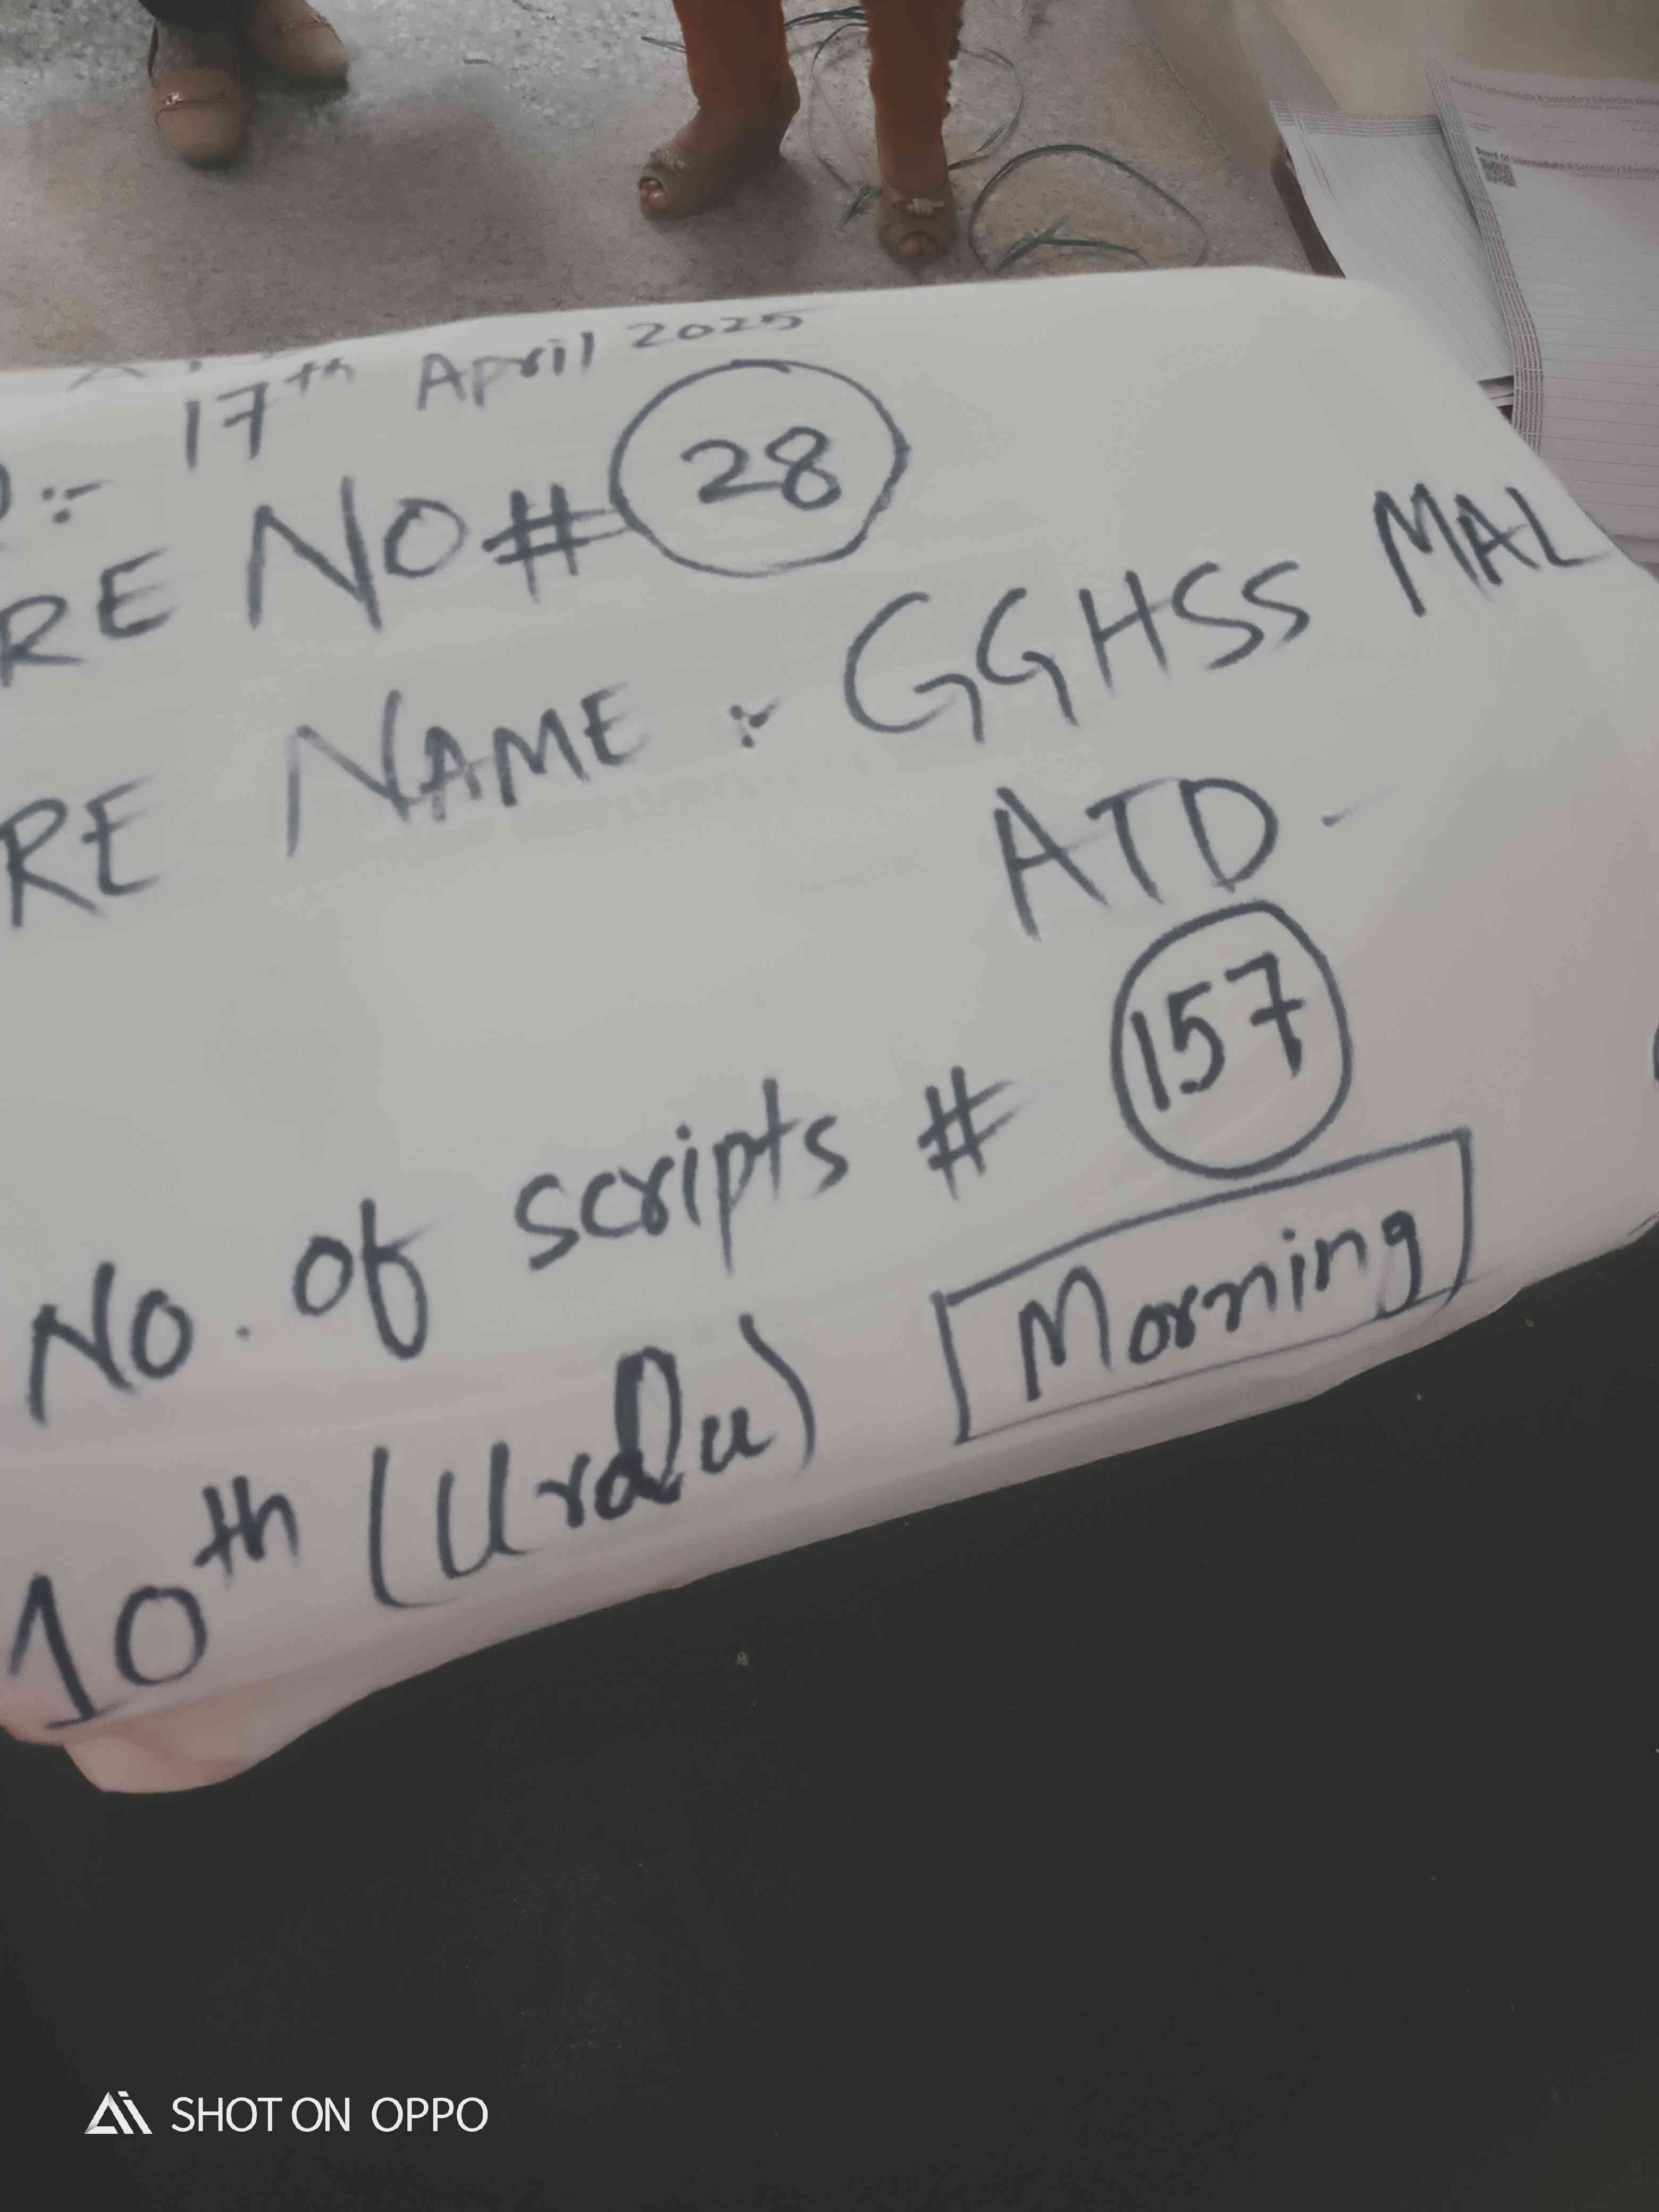 17th April 2025
:-
RE NO# 28
RE NAME :- GGHSS MAL
ATD-
No. of scripts # 157
10th (Urdu) Morning
Board Of Intermediate & Secondary Education
SHOT ON OPPO